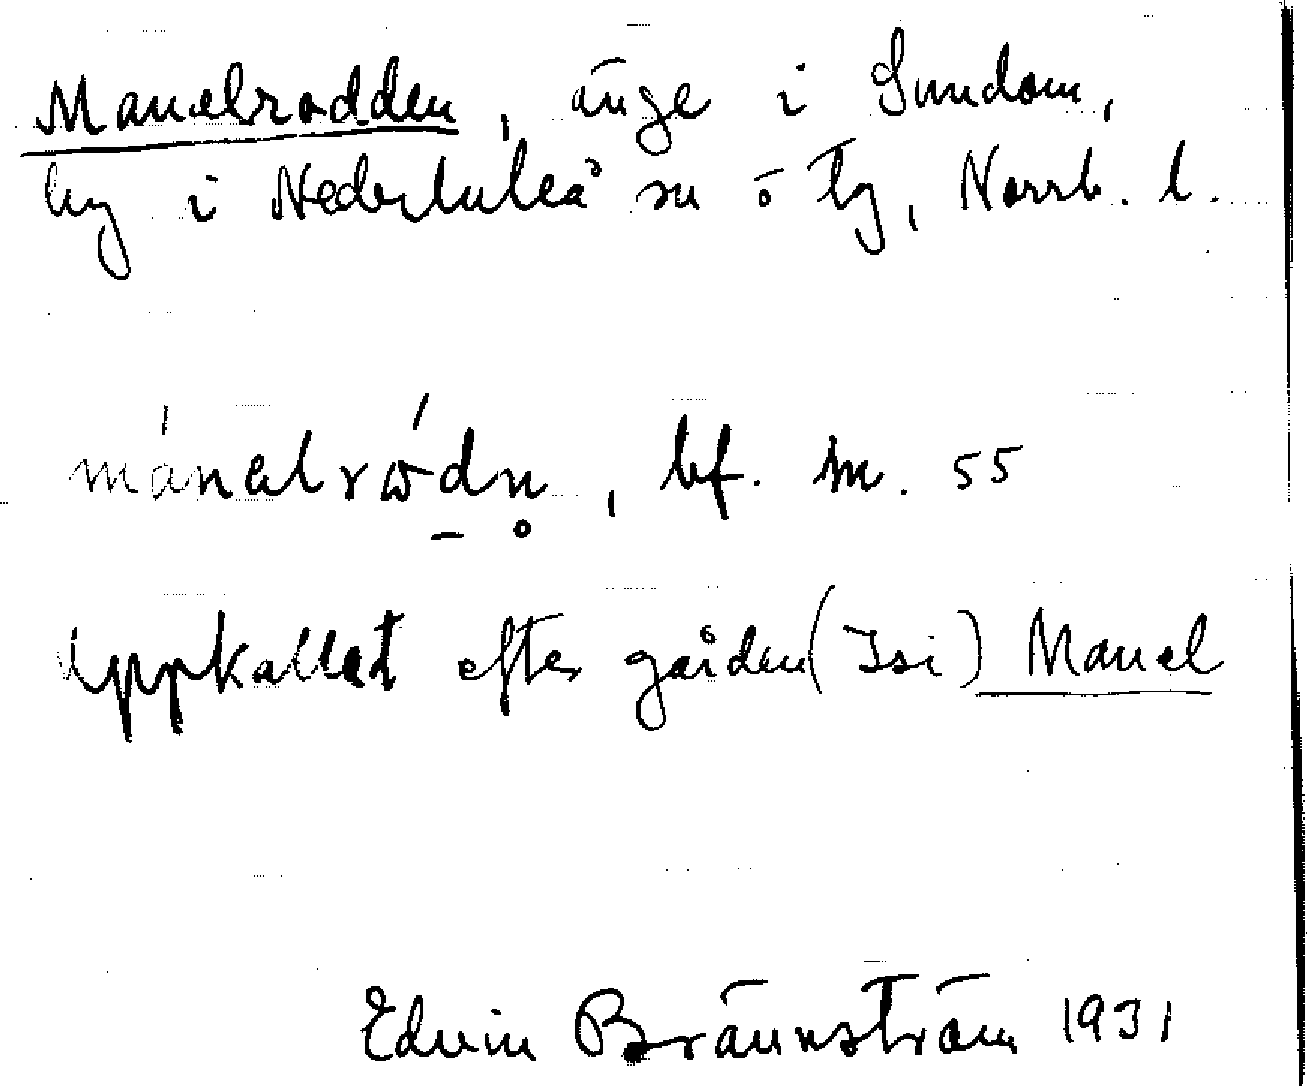 Manelrodden, änge i Sundom,
by i Nederluleå sn ö tg, Norrb. l.
mánalrώdn̥, bf. m. 55
Uppkallat efter gården (Isi) Manel
Edvin Brännström 1931